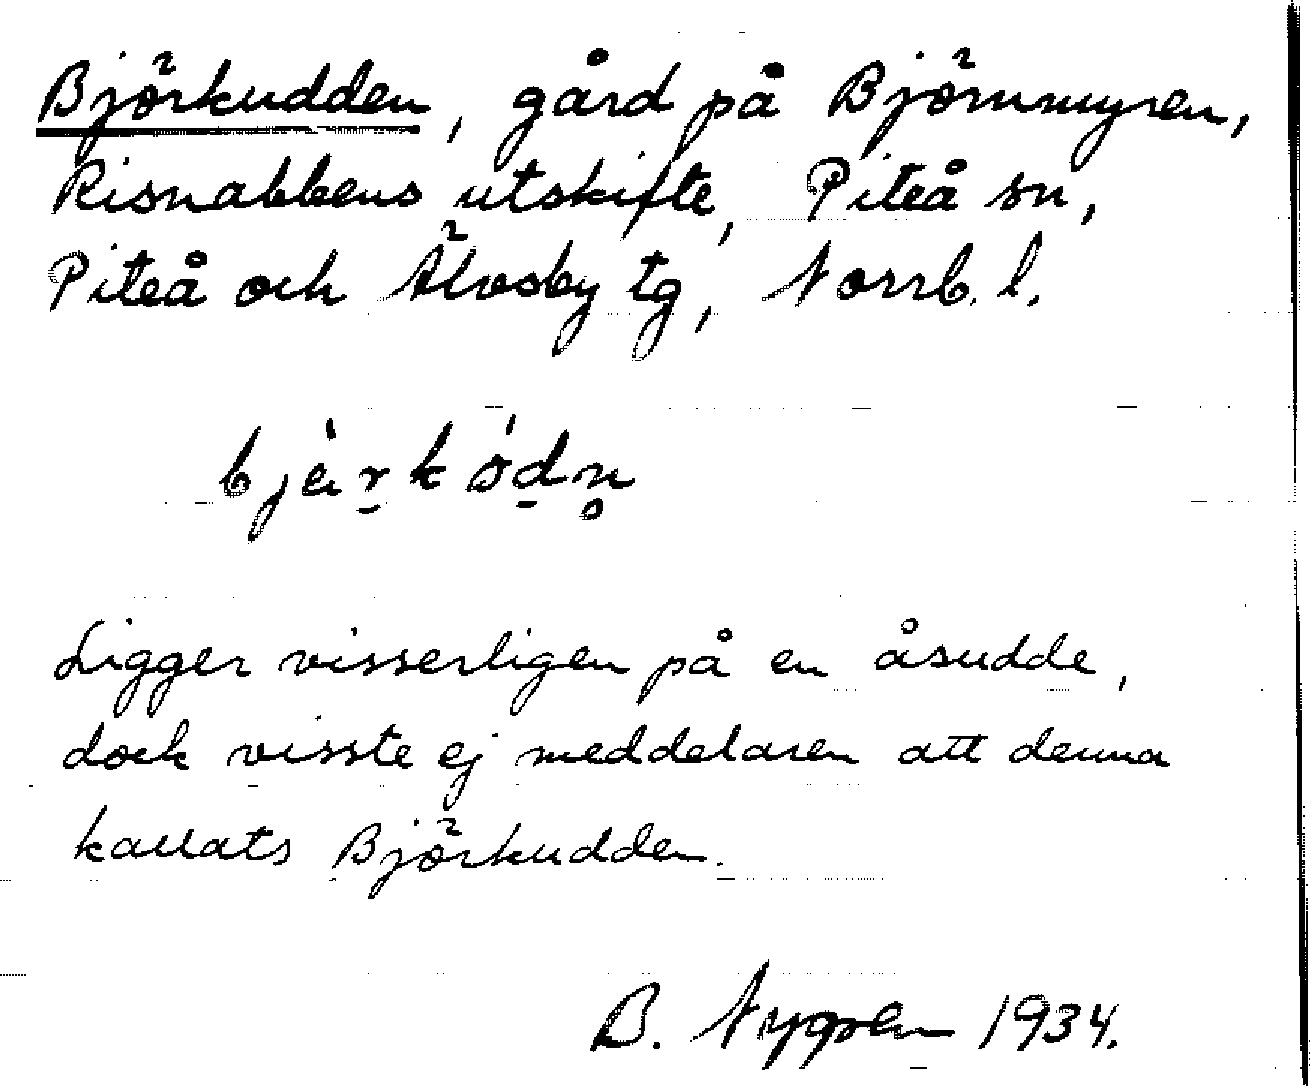 Björkudden, gård på Björnmyren,
Risnabbens utskifte, Piteå sn,
Piteå och Älvsby tg, Norrb. l.
Ligger visserligen på en åsudde,
dock visste ej meddelaren att denna
kallats Björkudden.
B. Nygren 1934.